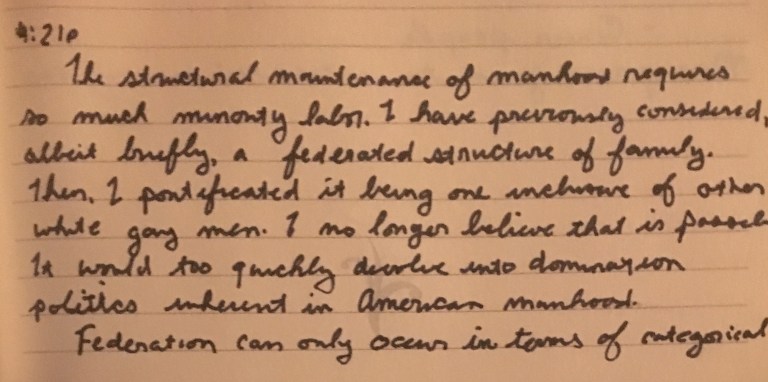 4:21p
The structural maintenance of manhood requires
so much minority labor. I have previously considered,
albeit briefly, a federated structure of family.
Then, I pontificated it being one inclusive of other
white gay men. I no longer believe that is
It would too quickly devolve into domination
politics inherent in American manhood.
Federation can only occur in terms of categorical